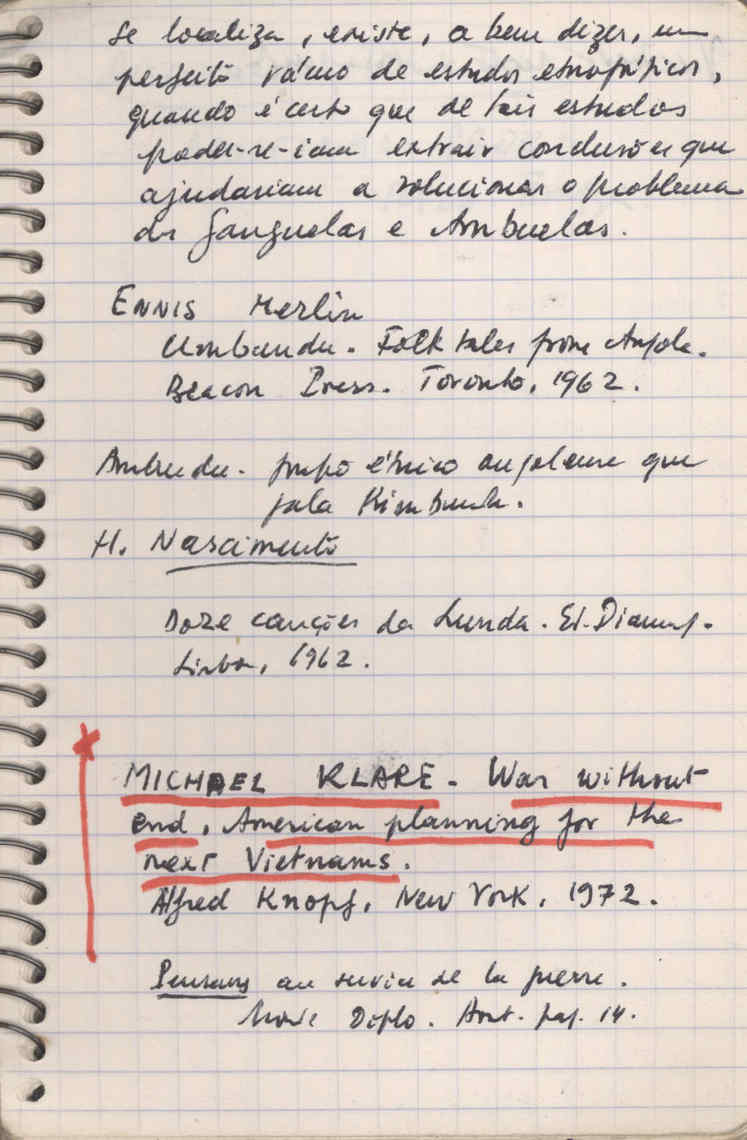 se localiza, existe, a bem dizer, um
perfeito vácuo de estudos etnográficos,
quando é certo que de tais estudos
poder-se-iam extrair conclusões que
ajudariam a solucionar o problema
dos Ganguelas e Ambuelas.
ENNIS Merlin
Umbundu. Folk tales from Angola.
Beacon Press. Toronto, 1962.
Ambundu. grupo étnico angolense que
fala Kimbundu.
H. Nascimento
Doze canções da Lunda. Ed. Diamang.
Lisboa, 1962.
MICHAEL KLARE. War without
end, American planning for the
next Vietnams.
Alfred Knopf, New York, 1972.
au service de la guerre.
Monde Diplo. Août. pag. 14.